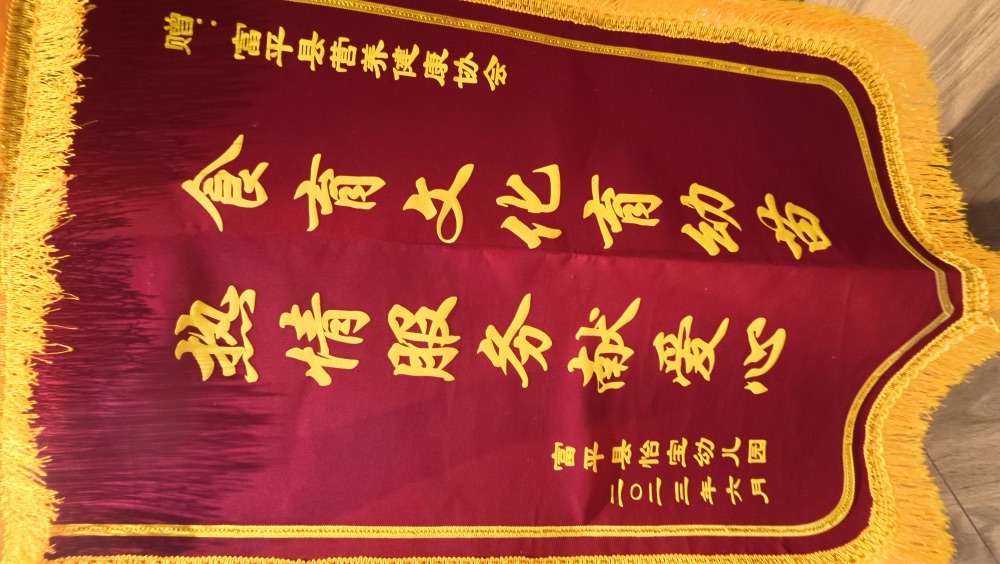 赠：富平县营养健康协会
食育文化育幼苗
热情服务献爱心
富平县怡宝幼儿园
二〇二三年六月